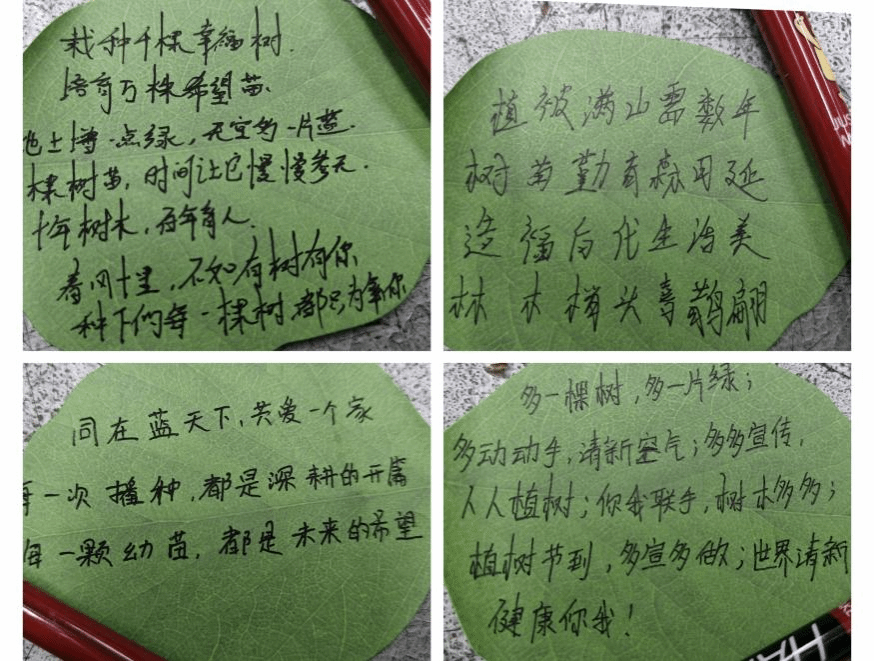 栽种千棵幸福树.
培育万株希望苗.
地上增一点绿，天空多一片蓝.
棵树苗，时间让它慢慢参天.
十年树木，百年育人.
春风十里，不如有树有你
种下的每一棵树，都只为氧你
植被满山需数年
树苗勤育森周延
造福后代生治美
林木梢头喜鹊翩
同在蓝天下，共爱一个家
每一次播种，都是深耕的开篇
每一颗幼苗，都是未来的希望
多一棵树，多一片绿；
多动动手，清新空气；多多宣传，
人人植树；你我联手，树木多多；
植树节到，多宣多做；世界清新
健康你我！
JUS